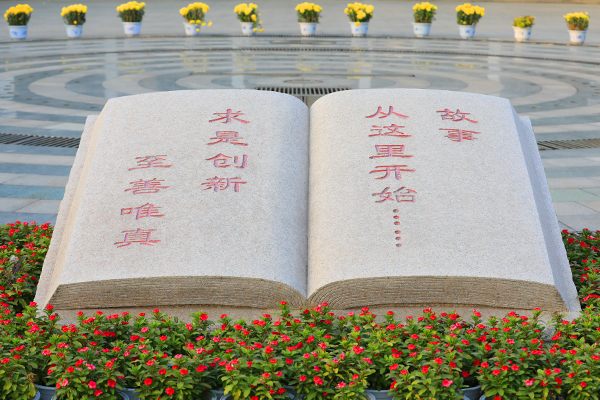 故事
从这里开始……
求是创新
至善唯真